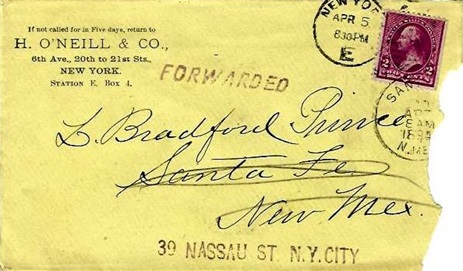 If not called for in Five days, return to
H. O'NEILL & CO.,
6th Ave., 20th to 21st Sts.,
NEW YORK.
STATION E, Box 4.
NEW YO
APR 5
830PM
E
FORWARDED
2 2
TWO CENTS
SAN
8 AM
N.ME
L. Bradford Prince
Santa Fe
New Mex.
39 NASSAU ST. N.Y. CITY